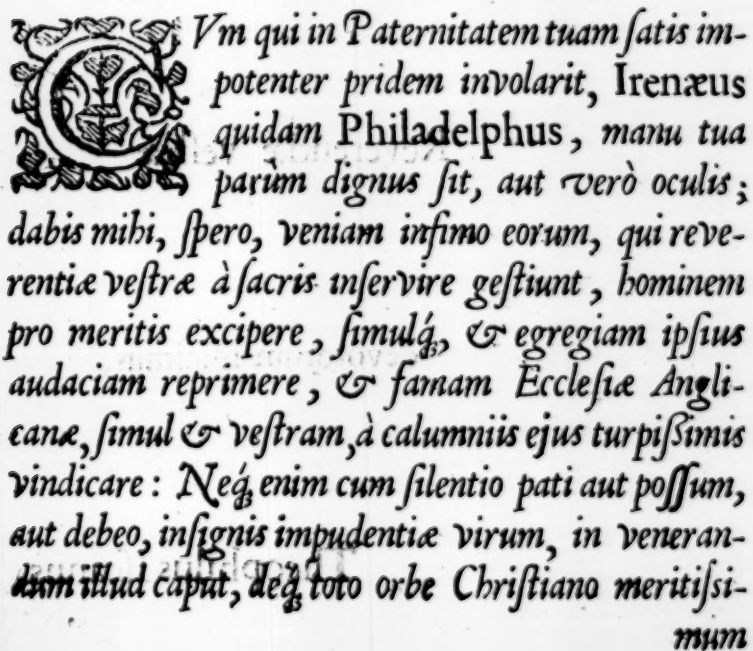 CVm qui in Paternitatem tuam ſatis im-
potenter pridem involarit, Irenæus
quidam Philadelphus, manu tua
parùm dignus ſit, aut verò oculis;
dabis mihi, ſpero, veniam infimo eorum, qui reve-
rentiæ veſtræ à ſacris inſervire geſtiunt, hominem
pro meritis excipere, ſimulq́;, & egregiam ipſius
audaciam reprimere, & famam Eccleſiæ Angli-
canæ, ſimul & veſtram, à calumniis ejus turpiſſimis
vindicare: Neq́; enim cum ſilentio pati aut poſſum,
aut debeo, inſignis impudentiæ virum, in veneran-
dum illud caput, deq́; toto orbe Chriſtiano meritiſſi-
mum